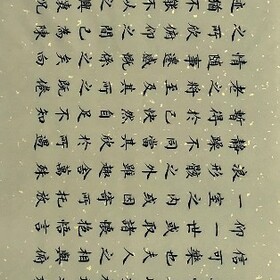 信可樂也夫人之相與俯
仰一世或取諸懷抱悟言
一室之內或因寄所託放
浪形骸之外雖趣舍萬殊
靜躁不同當其欣於所遇
暫得於己快然自足不知
老之將至及其所之既倦
情隨事遷感慨係之矣向
之所欣俛仰之間已為陳